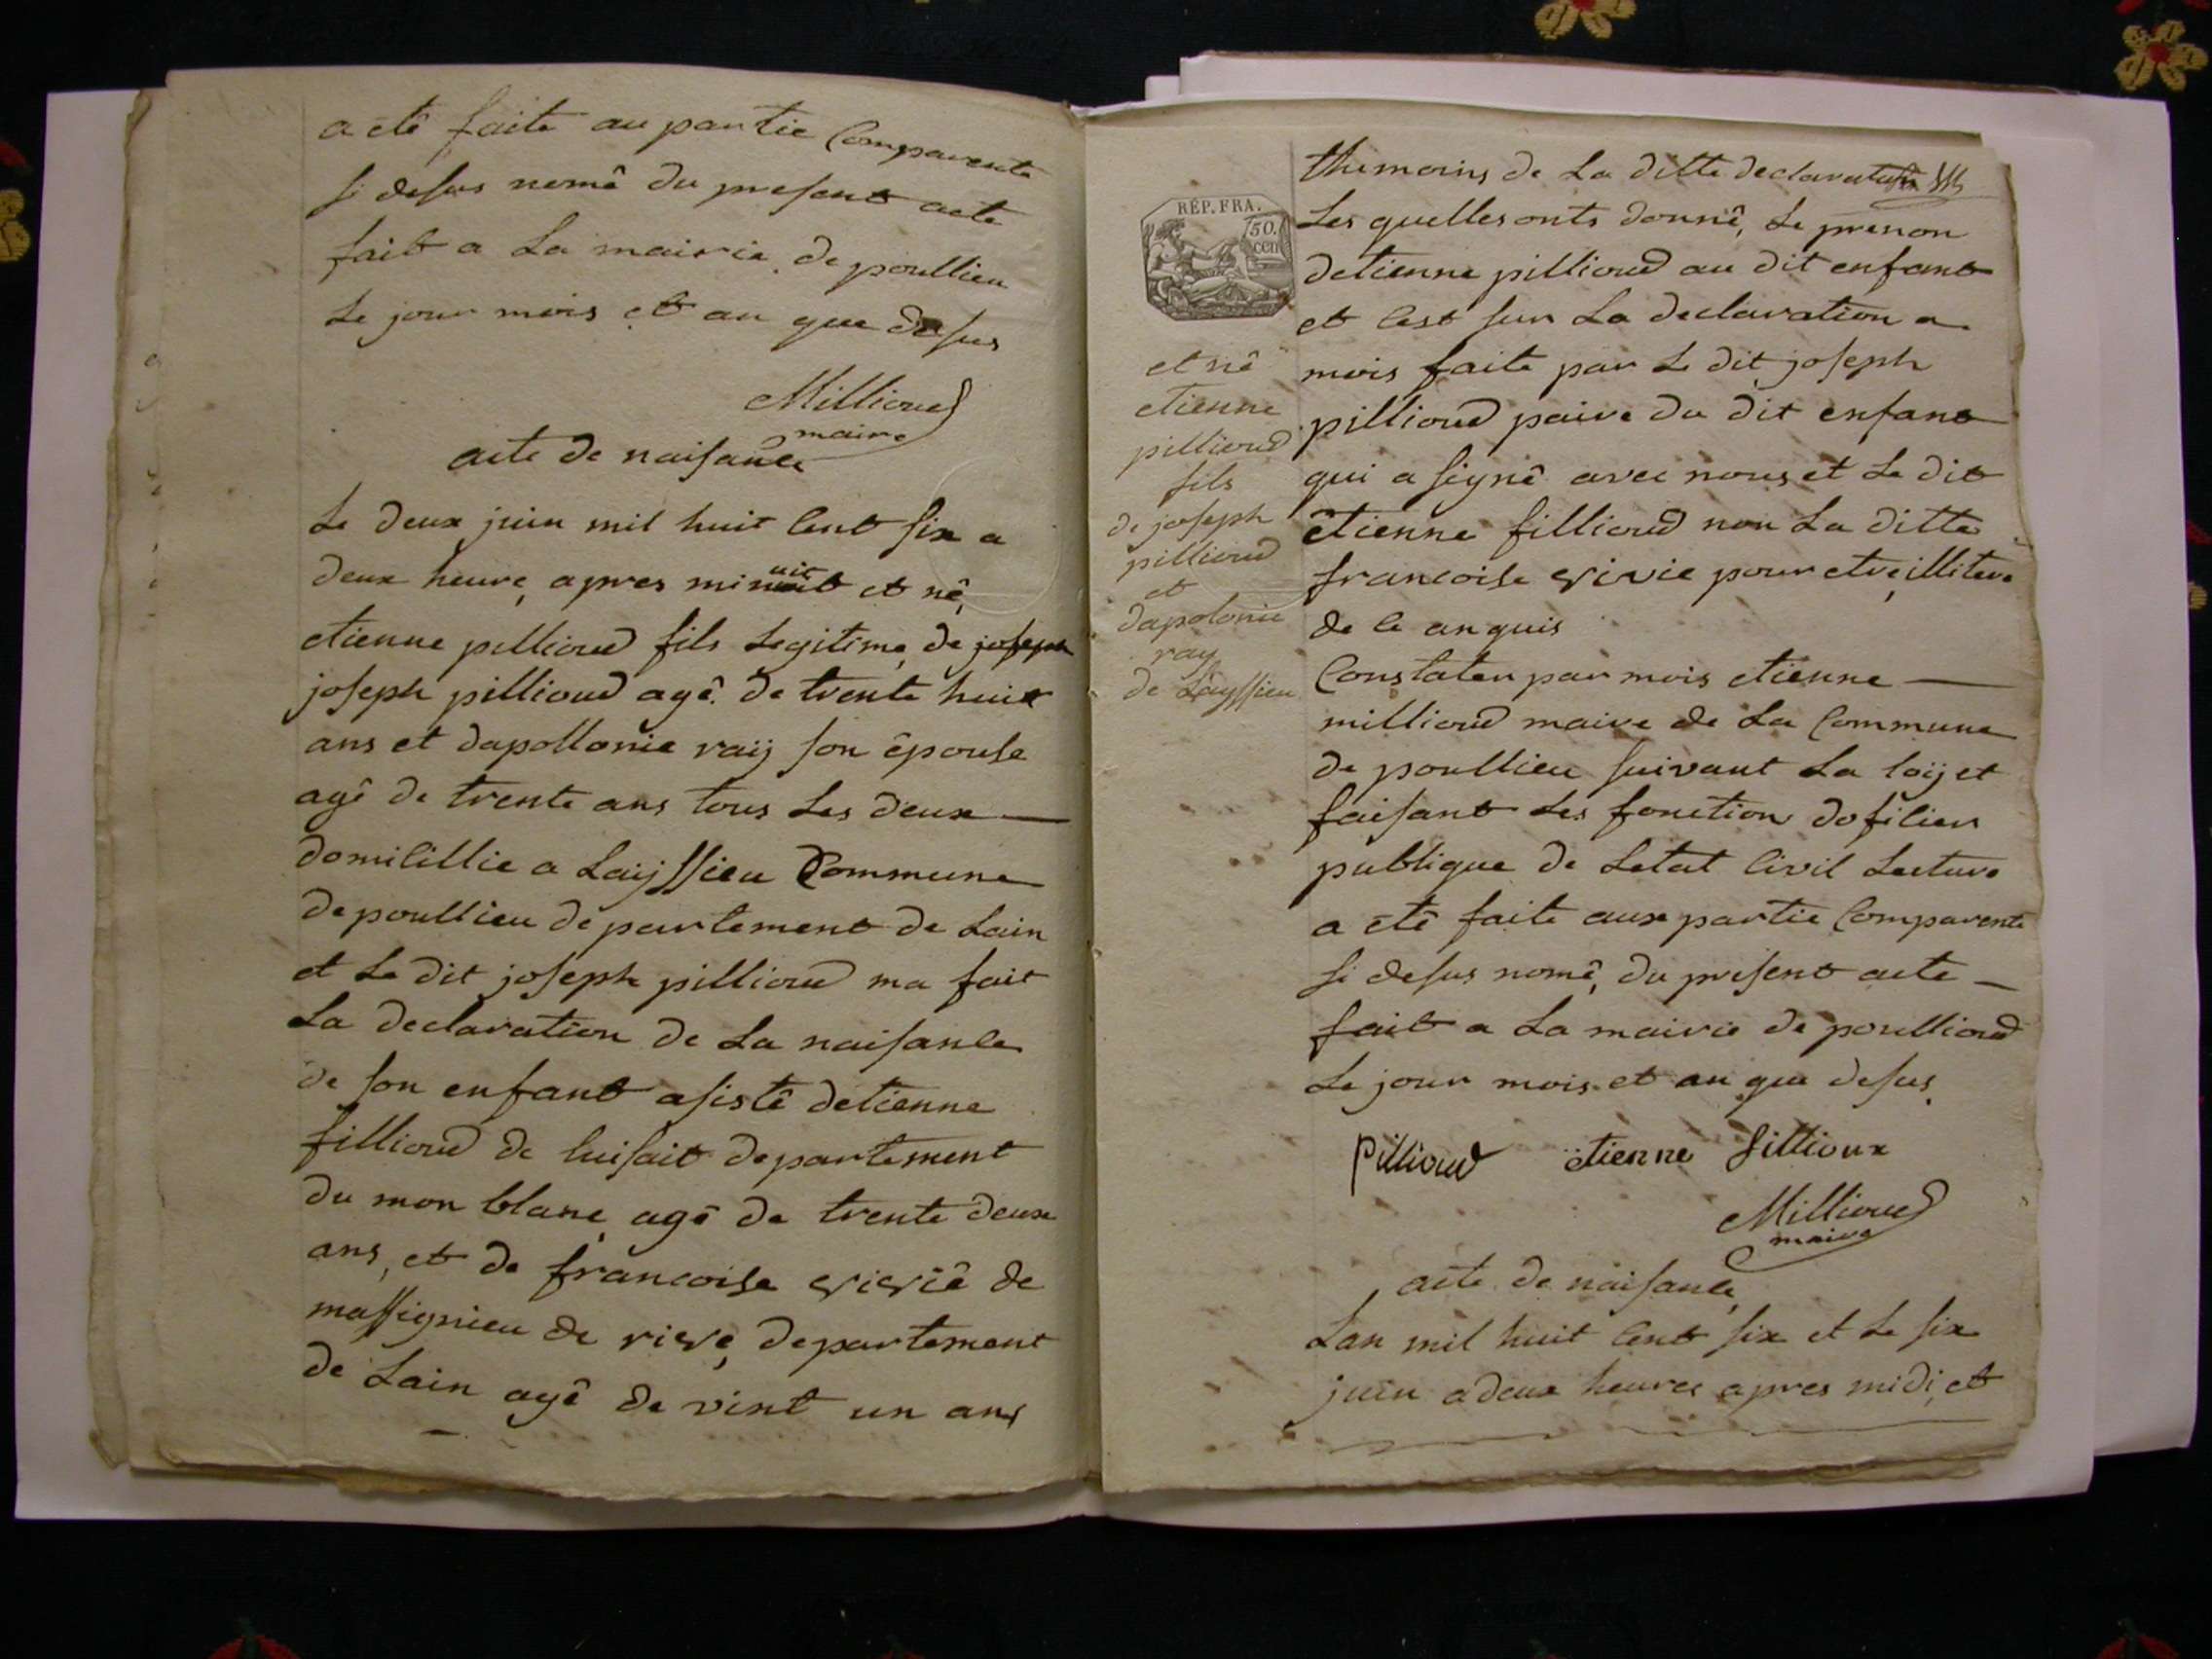 a eté faite au partie Comparente
si desus nomê du present acte
fait a La mairie de poullieu
Le jour mois et an que desus
Millioud
maire
acte de naisance
Le deux juin mil huit Cent six a
deux heure, apres minuit et nê,
etienne pillioud fils Legitime, de joseph
joseph pillioud agê de trente huit
ans et dapollonie raÿ son êpouse
agê de trente ans tous Les deux
domicillie a Laÿssieu Commune
de poullieu departement de Lain
et Le dit joseph pillioud ma fait
La declaration de La naisance
de son enfant asistê detienne
fillioud de luisait departement
du mon blanc agê de trente deux
ans, et de francoise viviê de
massignieu de rive, departement
de Lain agê de vint un ans
RÉP. FRA.
50.
cen
et nê
etienne
pillioud
fils
de joseph
pillioud
et
dapolonie
ray
de Layssieu
themoins de La ditte declaration
Les quelles onts donnê, Le prenon
detienne pillioud au dit enfant
et Cest sur La declaration a
mois faite par Le dit joseph
pillioud paire du dit enfant
qui a signê avec nous et Le dit
etienne fillioud non La ditte
francoise vivie pour etre illitere
de Ce anquis
Constater par mois etienne
millioud maire de La Commune
de poullieu suivant La loÿ et
faisant Les fonction dofilier
publique de Letat Civil Lecture
a êtê faite aux partie Comparente
si desus nomê, du present acte
fait a La mairie de poullioud
Le jour mois et an que desus
Pillioud etienne fillioux
Millioud
maire
acte de naisance,
Lan mil huit Cent six et Le six
juin a deux heures apres midi, et